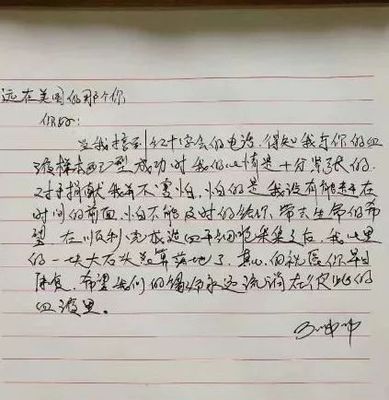 远在美国的那个你
你好:
当我接到红十字会的电话,得知我与你的血
液样本配型成功时我的心情是十分紧张的.
对于捐献我并不害怕.怕的是我没有能走在
时间的前面,怕不能及时的给你,带去生命的希
望.在顺利完成造血干细胞采集之后,我心里
的一块大石头总算落地了.衷心的祝愿你早日
康复.希望我们的缘分永远流淌在彼此的
血液里。